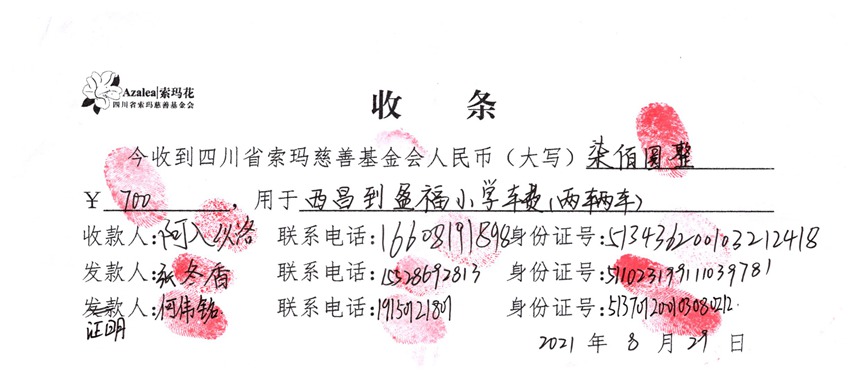 Azalea|索玛花
四川省索玛慈善基金会
收 条
今收到四川省索玛慈善基金会人民币（大写）柒佰圆整
¥ 700 ，用于西昌到盈福小学车费（两辆车）
收款人:阿入以洛 联系电话:16608191898 身份证号:513436200103212418
发款人:张冬香 联系电话:15328692813 身份证号:511023199111039781
发款人:何伟铭 联系电话:19150121801 身份证号:513701200103080212
证明
2021 年 8 月 29 日